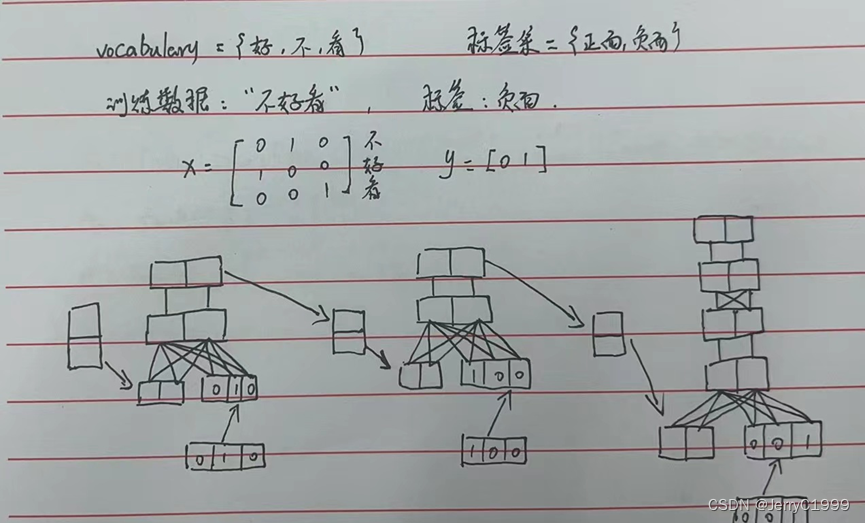 vocabulary = {好, 不, 看} 标签集 = {正面, 负面}
训练数据: "不好看", 标签: 负面.
x = [ 0 1 0 ] 不
1 0 0 好 y = [0 1]
0 0 1 看
0 1 0 1 0 0
0 0 1
0 1 0 1 0 0
0 0 1
CSDN @Jerryc1999